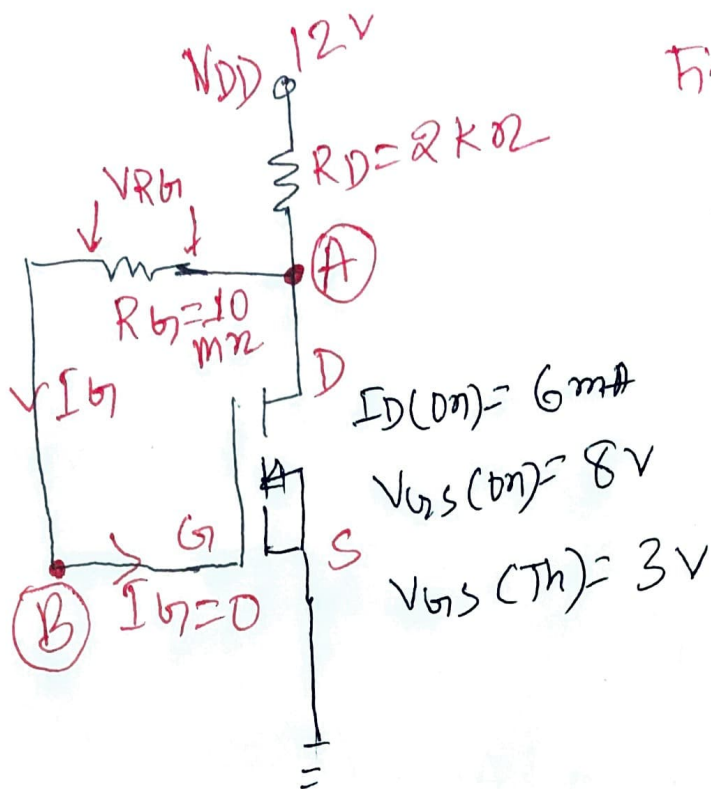 VDD 12V
RD=2KΩ
VRG
A
RG=10
MΩ
IG
D
ID(on)= 6mA
VGS(on)= 8V
G
S
VGS(Th)= 3V
B IG=0